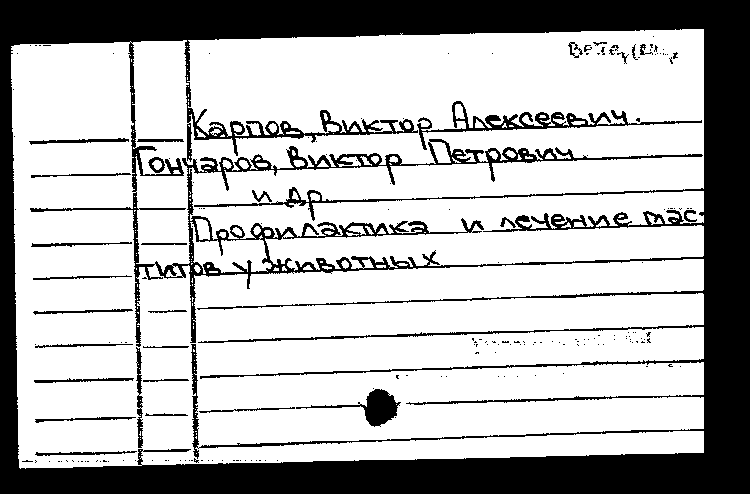 Карпов, Виктор Алексеевич.
Гончаров, Виктор Петрович.
и др.
Профилактика и лечение мас-
титов у животных